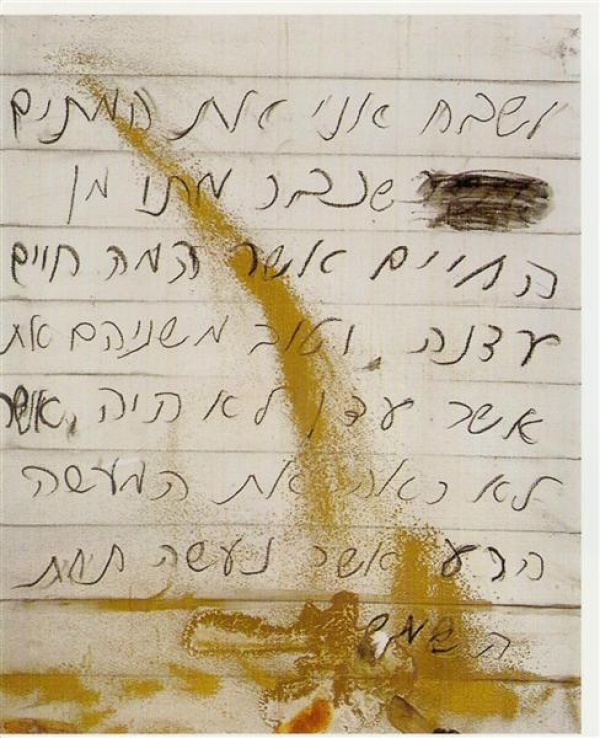 ושבח אני את המתים
שכבר מתו מן
החיים אשר המה חיים
עדנה, וטוב משניהם את
אשר עדן לא היה, אשר
לא ראה את המעשה
הרע אשר נעשה תחת
השמש